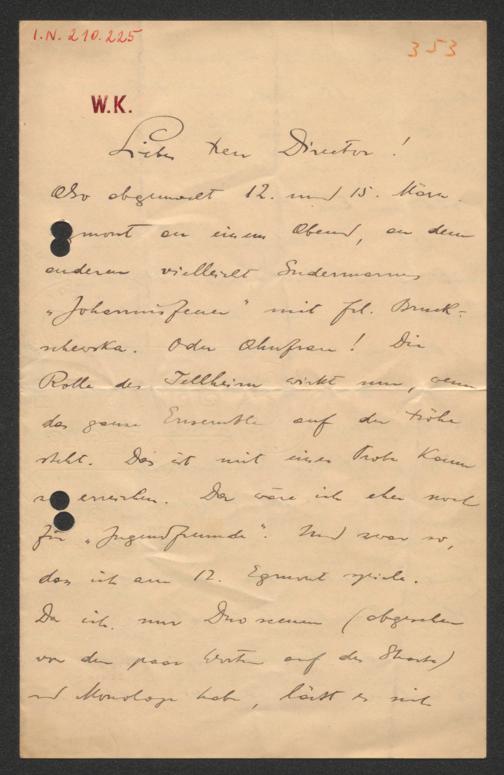 I.N. 210.225
353
W.K.
Lieber Herr Director!
Also abgemacht 12. und 15. März.
Egmont an einem Abend, an dem
anderen vielleicht Sudermanns
„Johannisfeuer" mit Frl. Bruck-
schewska. Oder Ahnfrau! Die
Rolle des Tellheim wirkt nur, wenn
das ganze Ensemble auf der Höhe
steht. Das ist mit einer Probe kaum
zu erreichen. Da wäre ich eher noch
für „Jugendfreunde". Und zwar so,
dass ich am 12. Egmont spiele.
Da ich nur Duoscenen (abgesehen
von den paar Worten auf der Straße)
und Monologe habe, lässt es sich